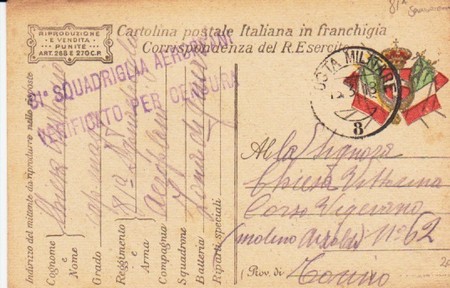 81a
RIPRODUZIONE
E VENDITA
PUNITE
ART. 285 E 270 C.P.
Cartolina postale Italiana in franchigia
Corrispondenza del R. Esercito
81a SQUADRIGLIA AEROPLANI
VERIFICATO PER CENSURA
POSTA MILITARE
3
Indirizzo del mittente da riprodurre nelle risposte
Cognome e Nome Chiesa
Grado
Reggimento e Arma 81a Squadriglia
Compagnia Aeroplani
Squadrone
Batteria Zona di guerra
Riparti speciali
Al la Signora
Chiesa Vittorina
Corso Vigevano
molino N° 62
(Prov. di Torino